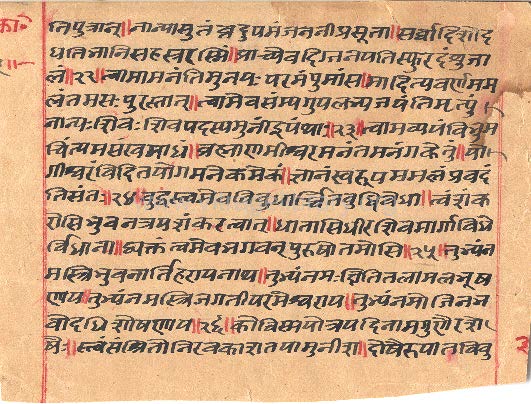 तिपुत्रान्॥नान्यासुतंत्वदुपमंजननीप्रसूता॥सर्वादिशोद
धतिभानिसहस्ररश्मिं॥प्राच्येवदिग्जनयतिस्फुरदंशुजा
लं॥२२॥त्वामामनंतिमुनयःपरमंपुमांस॥मादित्यवर्णमम
लंतमसःपुरस्तात्॥त्वामेवसम्यगुपलभ्यजयंतिमृत्युं
नान्यःशिवःशिवपदस्यमुनींद्रपंथाः॥२३॥त्वामव्ययंविभुम
चिंत्यमसंख्यमाद्यं॥ब्रह्माणमीश्वरमनंतमनंगकेतुं॥यो
गीश्वरंविदितयोगमनेकमेकं॥ज्ञानस्वरूपममलंप्रवदं
तिसंतः॥२४॥बुद्धस्त्वमेवविबुधार्चितबुद्धिबोधा॥त्वंशंक
रोसिभुवनत्रयशंकरत्वात्॥धातासिधीरशिवमार्गविधे
र्विधाना॥व्यक्तंत्वमेवभगवन्पुरुषोत्तमोसि॥२५॥तुभ्यंन
मस्त्रिभुवनार्तिहरायनाथ॥तुभ्यंनमःक्षितितलामलभूष
णाय॥तुभ्यंनमस्त्रिजगतीपरमेश्वराय॥तुभ्यंनमोजिनभ
वोदधिशोषणाय॥२६॥कोविस्मयोत्रयदिनामगुणैरशे
षैः॥स्त्वंसंश्रितोनिरवकाशतयामुनीश॥दोषैरुपात्तविबु